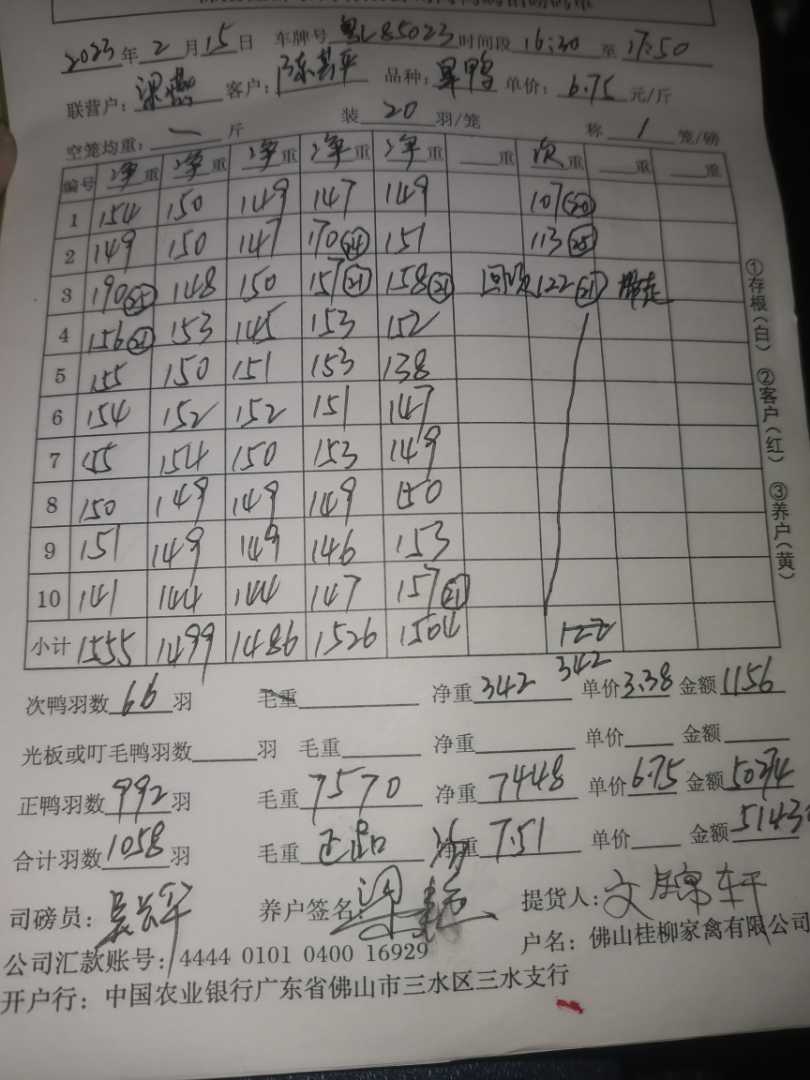 2023年2月15日 车牌号粤L85023时间段16:30至17:50
联营户: 客户: 品种: 鸭 单价:6.75元/斤
空笼均重:一斤 装20羽/笼 称1笼/磅
编号 净重 净重 净重 净重 净重 重 次重 重 重
1 154 150 149 147 149 107(20)
2 149 150 147 170(24) 151 113(25)
3 190(25) 148 150 157(21) 158(21) 回收122(21)
4 156(21) 153 145 153 152
5 155 150 151 153 138
6 154 152 152 151 147
7 155 154 150 153 149
8 150 149 149 149 150
9 151 149 149 146 153
10 141 144 144 147 157(21)
小计 1555 1499 1486 1526 1504 122
342
次鸭羽数66羽 毛重 净重342 单价3.38 金额1156
光板或叮毛鸭羽数 羽 毛重 净重 单价 金额
正鸭羽数992羽 毛重7570 净重7448 单价6.75 金额50274
合计羽数1058羽 毛重正品 净重7.51 单价 金额5143
司磅员: 养户签名: 提货人:文锦轩
公司汇款账号:4444 0101 0400 16929 户名:佛山桂柳家禽有限公司
开户行:中国农业银行广东省佛山市三水区三水支行
①存根(白) ②客户(红) ③养户(黄)